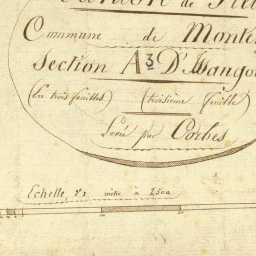 Commune de Monte
Section A3 D'
(En trois feuilles) (troisième feuille)
Levé par Combes
Echelle, de 1 mètre à 2500